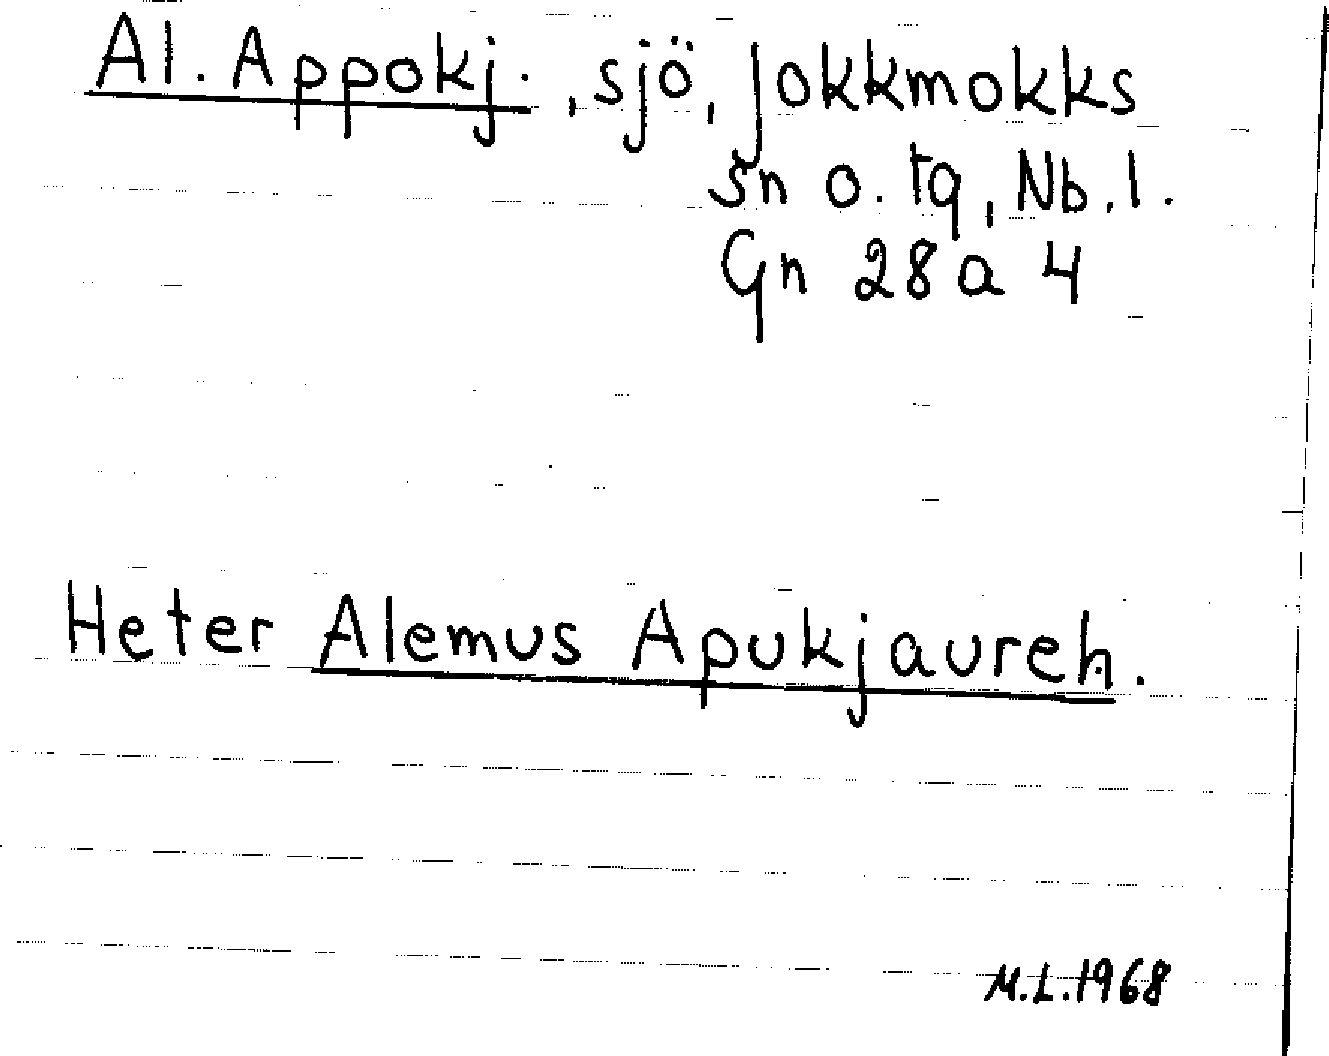 Al. Appokj., sjö, Jokkmokks
sn o. tg, Nb. l.
Gn 28 a 4
Heter Alemus Apukjaureh.
M.L. 1968